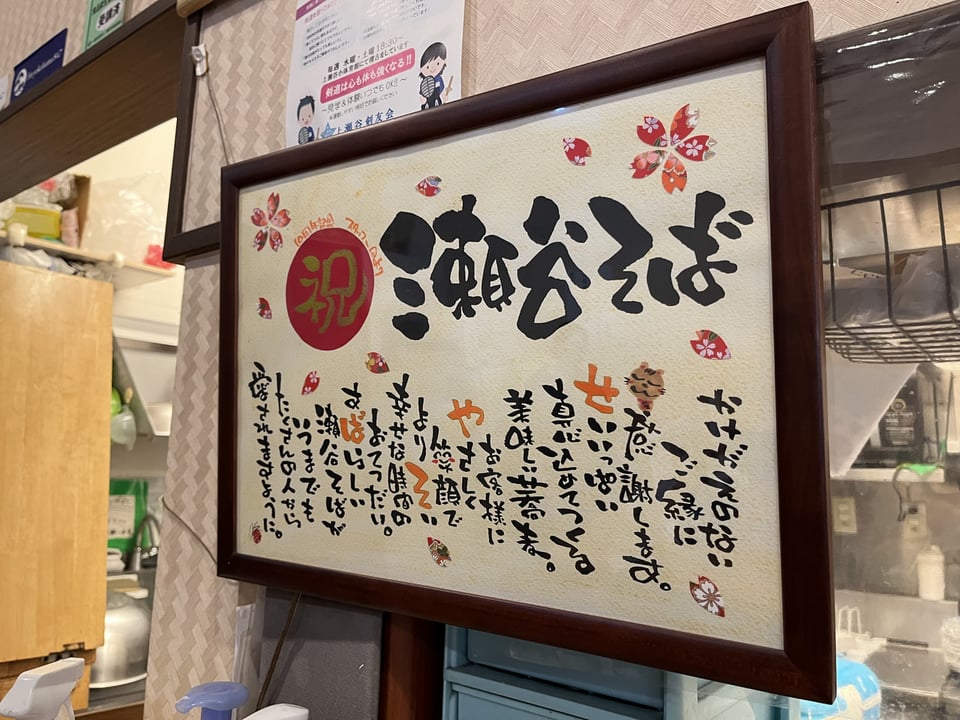 毎週 水曜・土曜 18:30〜
上瀬谷小体育館にて稽古をしています
剣道は心も体も強くなる!!
〜見学&体験いつでもOK!!〜
上瀬谷剣友会
祝
瀬谷そば
かけがえのない
ご縁に
感謝します。
せいいっぱい
真心込めてつくる
美味しい蕎麦。
お客様に
やさしく
笑顔で
よりそい
幸せな時間の
おてつだい。
すばらしい
瀬谷そばが
いつまでも
たくさんの人から
愛されますように。